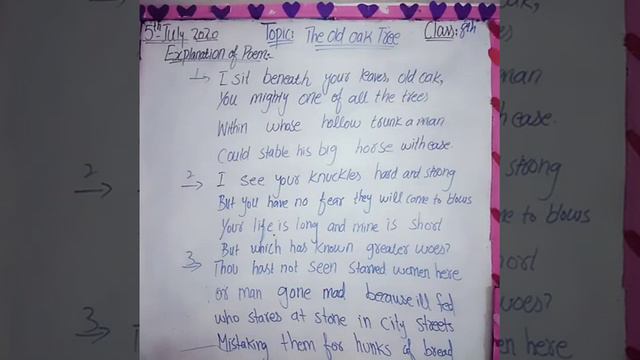 5th July 2020 Topic: The old oak Tree Class: 8th
Explanation of Poem:-
1 → I sit beneath your leaves, old oak,
You mighty one of all the trees
Within whose hollow trunk a man
Could stable his big horse with ease.
2 → I see your knuckles hard and strong
But you have no fear they will come to blows
Your life is long and mine is short
But which has known greater woes?
3 → Thou hast not seen starved women here
or man gone mad because ill fed
who stares at stone in city streets
Mistaking them for hunks of bread